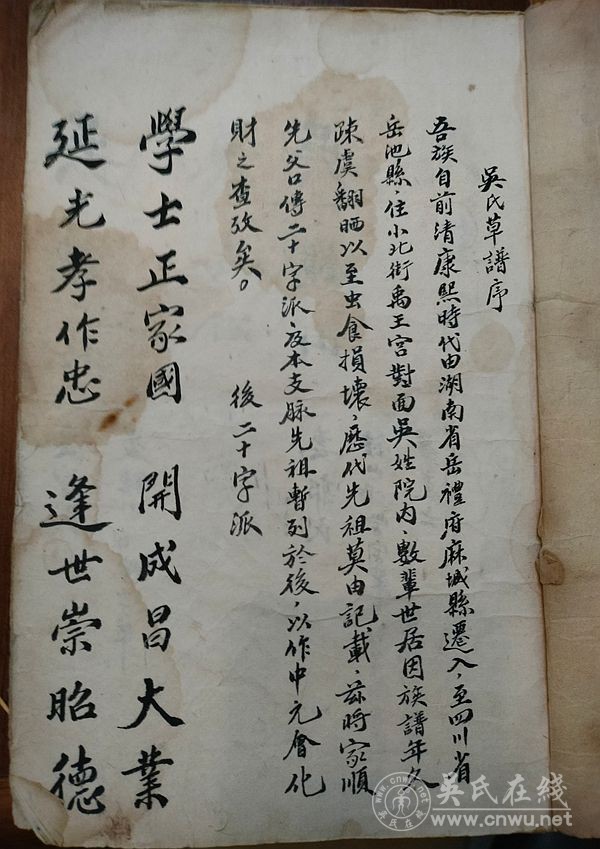 吳氏草譜序
吾族自前清康熙時代由湖南省岳禮府麻城縣遷入，至四川省
岳池縣，住小北街禹王宮對面吳姓院內，數輩世居因族譜年久
疎虞翻晒以至虫食損壞，歷代先祖莫由記載，茲將家順
先父口傳二十字派，及本支脈先祖暫列於後，以作中元會化
財之查攷矣。 後二十字派
學士正家國 開成昌大業
延光孝作忠 逢世崇昭德
吳氏在綫
www.cnwu.net